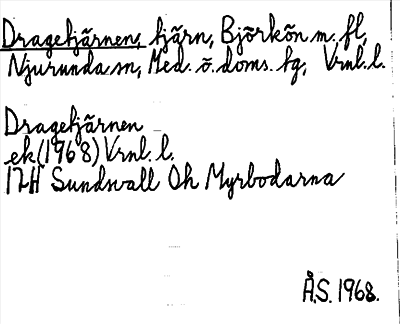 Dragetjärnen, tjärn, Björkön m. fl.,
Njurunda sn, Med. ö. doms. tg, Vrnl. l.
Dragetjärnen
ek (1968) Vrnl. l.
17H Sundsvall 0h Myrbodarna
Å.S. 1968.